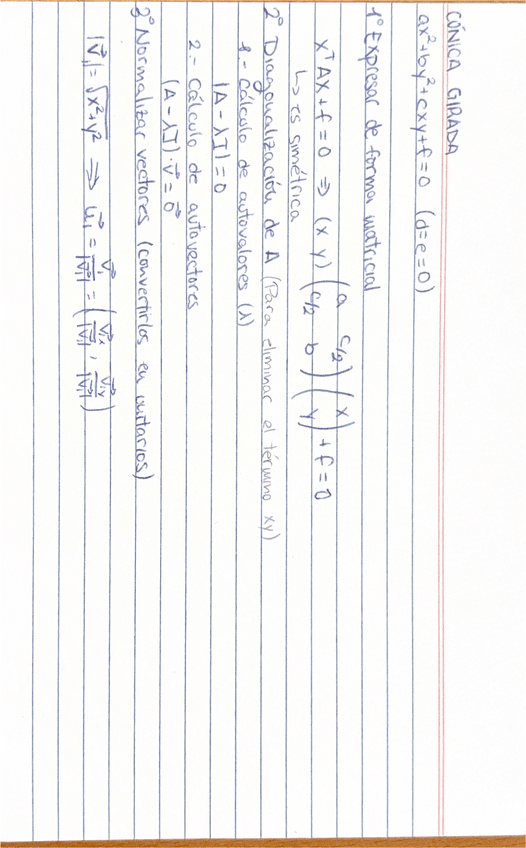 CÓNICA GIRADA
ax²+by²+cxy+f=0 (d=e=0)
1º Expresar de forma matricial
XᵀAX+f=0 ⇒ (x y) (a c/2; c/2 b) (x; y) + f = 0
↳ es simétrica
2º Diagonalización de A (Para eliminar el término xy)
1.- Cálculo de autovalores (λ)
|A - λI| = 0
2.- Cálculo de autovectores
(A - λI)·v⃗ = 0⃗
3º Normalizar vectores (convertirlos en unitarios)
|v⃗₁| = √x²+y² ⇒ u⃗₁ = v⃗₁/|v⃗₁| = (v⃗₁ₓ/|v⃗₁|, v⃗₁ᵧ/|v⃗₁|)